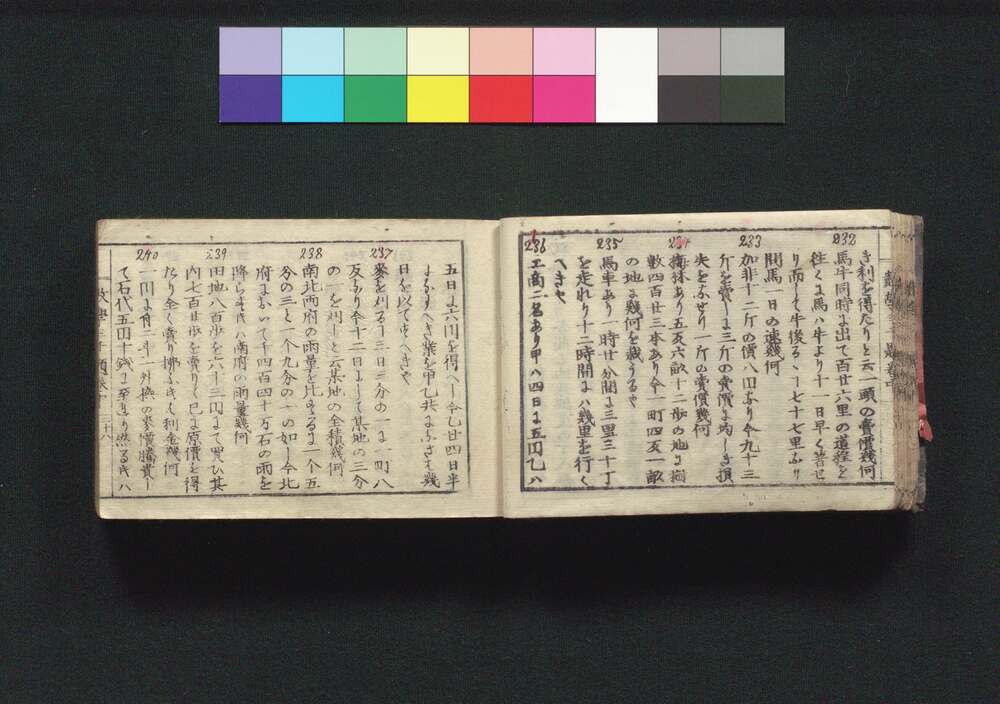 232
き利を得たりと云一頭の賣價幾何
馬牛同時に出て百廿六里の道程を
往くに馬ハ牛より十一日早く著せ
り而して牛後るゝ丁七十七里なり
問馬一日の速幾何
233
加非十二斤の價八円なり今九十三
斤を賣しに三斤の賣價に均しき損
失をなせり一斤の賣價幾何
234
あり五反六畝十二歩の地に
數四百廿三本あり今一町四反一畝
の地に幾何を栽うるや
235
馬車あり一時廿分間に三里三十丁
を走れり十二時間に八幾里を行く
へきや
236
工商二名あり甲ハ四日に五円乙ハ
五日に六円を得へし今乙廿四日半
になすへき業を甲乙共になさは幾
日を以てすへきや
237
麥を刈る丁三日三分の一に一町八
反なり今十二日にして某地の三分
の一を刈しと云某地の全積幾何
238
南北兩府の雨量を比するに一个五
分の三と一个九分の一の如し今北
府に於いて千四百四十万石の雨を
降らすときハ南府の雨量幾何
239
田地八百歩を六十三円にて買ひ其
内七百廿歩を賣りて已に原價を得
たり全く賣り拂ふときハ利金幾何
240
一円に付二斗一升換の麥價騰貴し
て石代五円十錢に至れり然るときハ